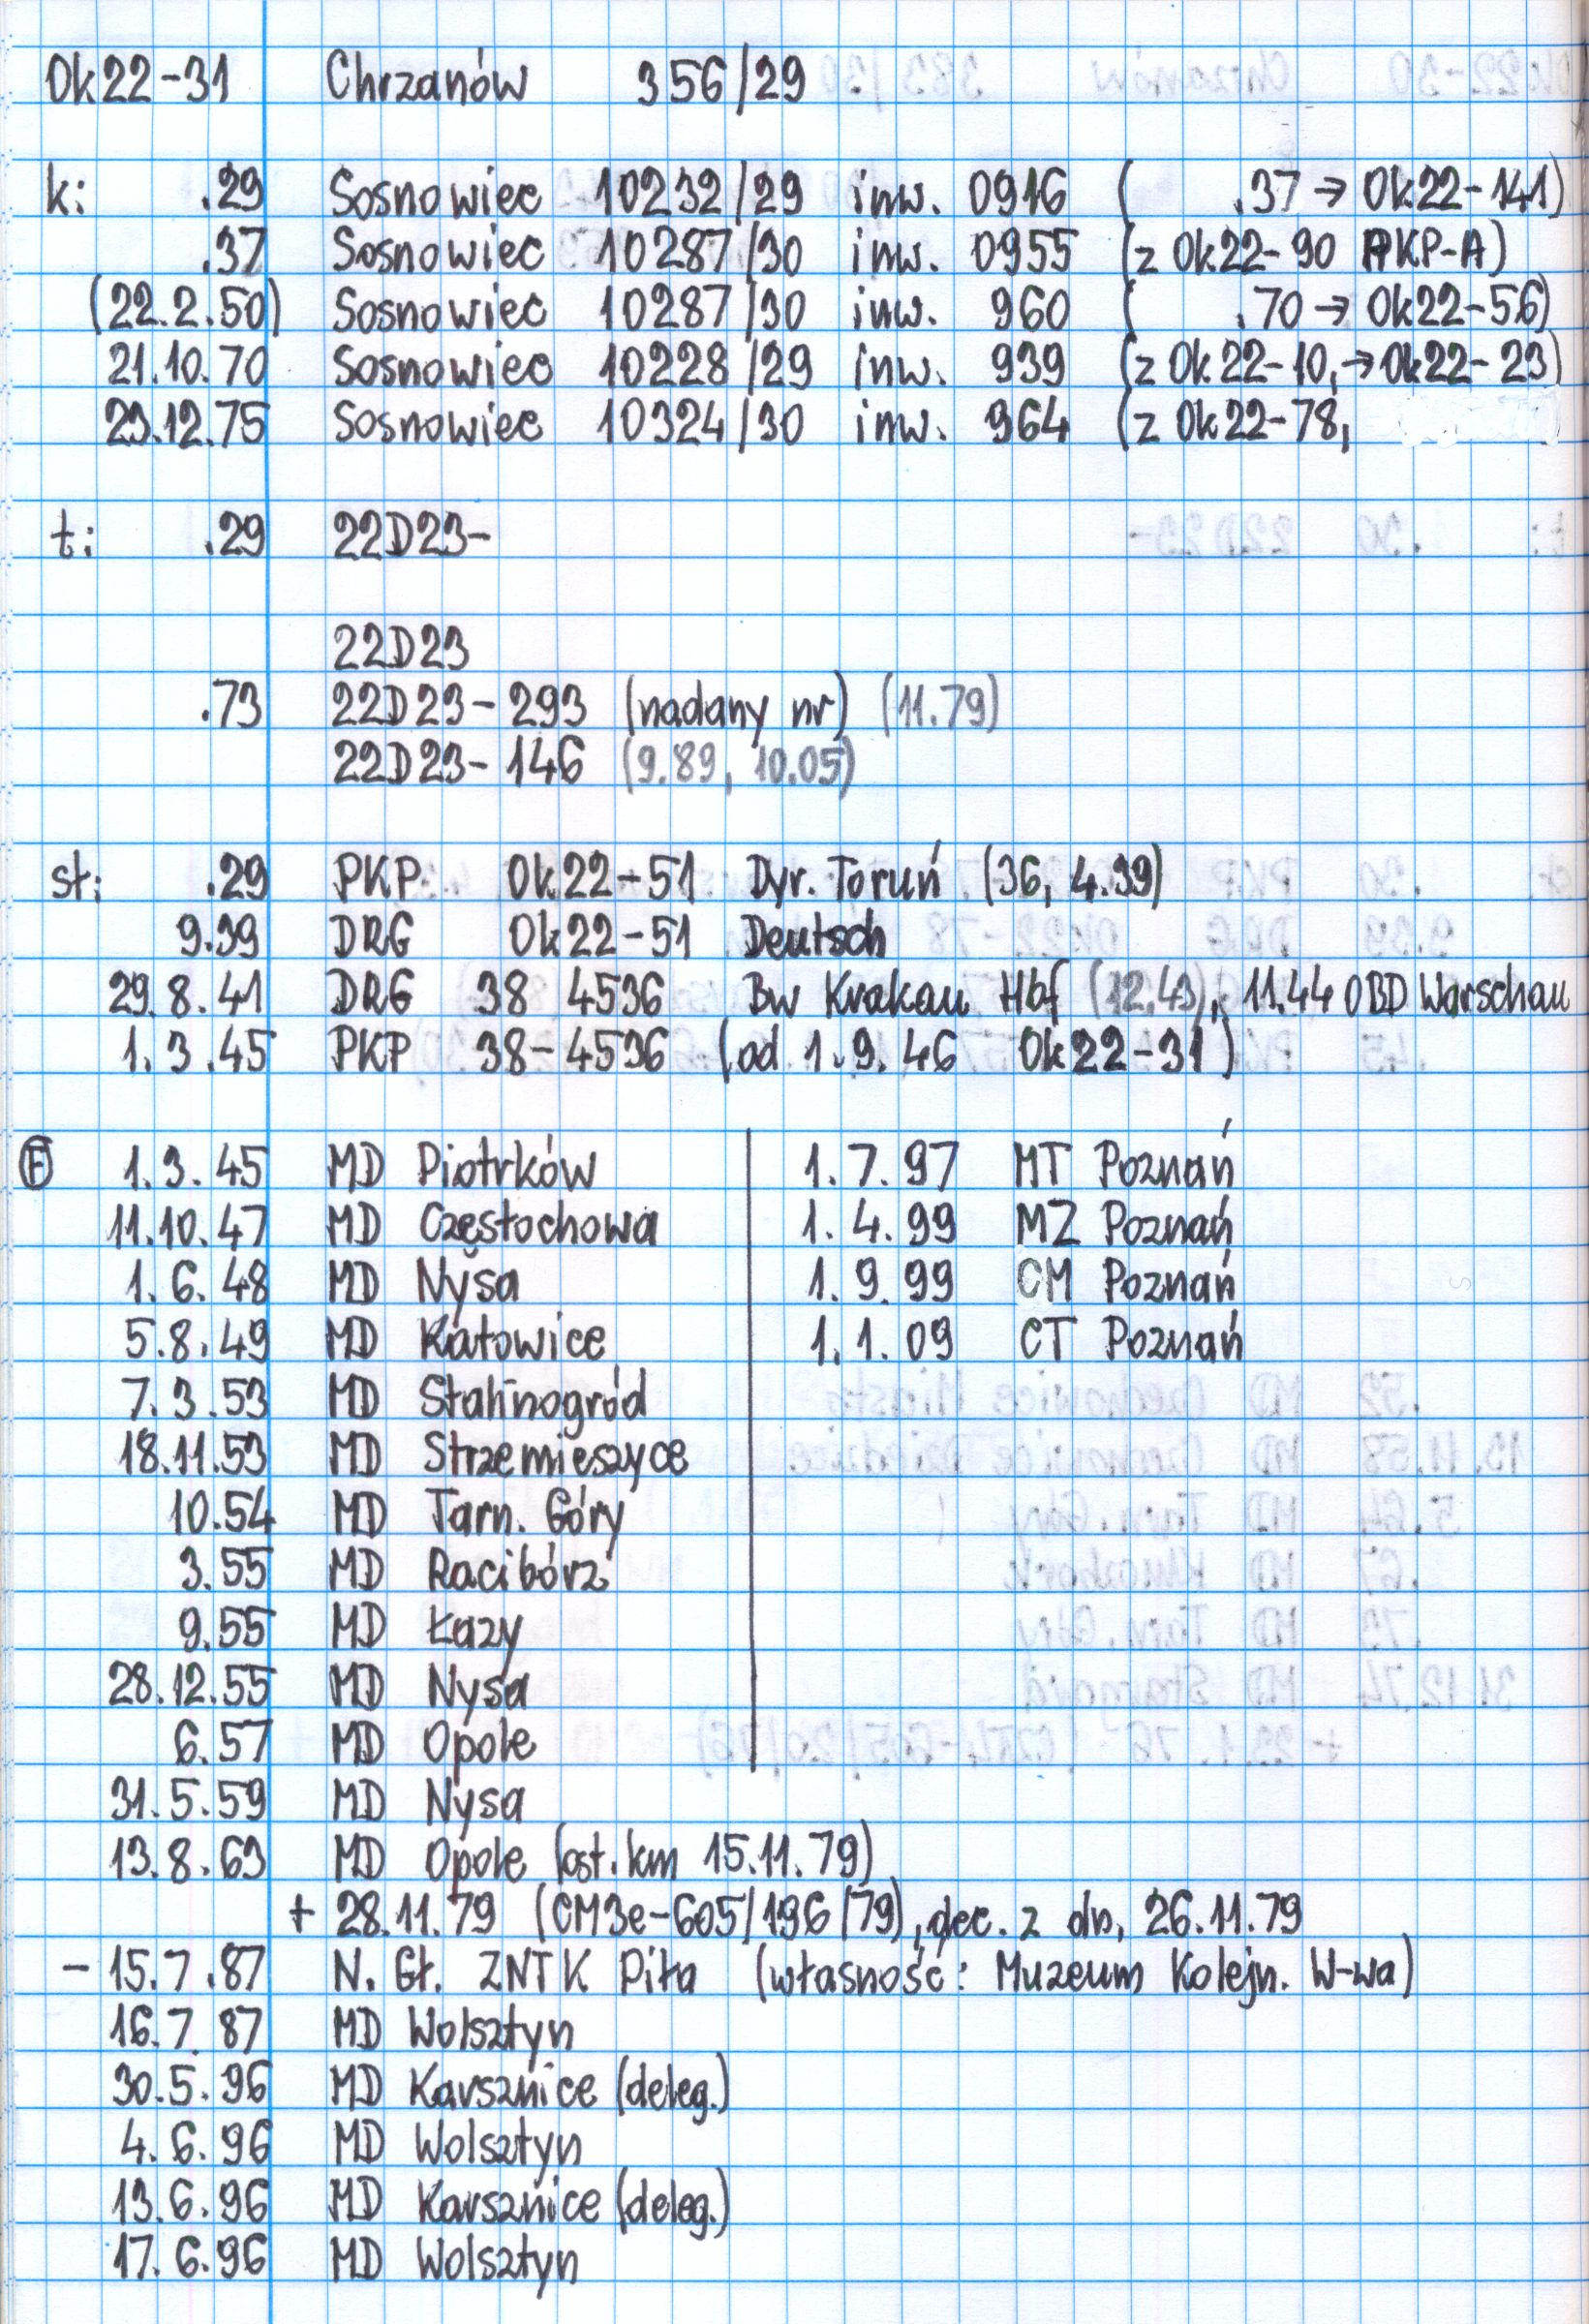 Ok22-31 Chrzanów 356/29
k: .29 Sosnowiec 10232/29 inw. 0916 ( .37 → Ok22-141)
.37 Sosnowiec 10287/30 inw. 0955 (z Ok22-90 PKP-A)
(22.2.50) Sosnowiec 10287/30 inw. 960 ( .70 → Ok22-56)
21.10.70 Sosnowiec 10228/29 inw. 939 (z Ok22-10, → Ok22-23)
23.12.75 Sosnowiec 10324/30 inw. 964 (z Ok22-78,
t: .29 22D23-
22D23
.73 22D23-293 (nadany nr) (11.79)
22D23-146 (9.89, 10.05)
st: .29 PKP Ok22-51 Dyr. Toruń (36, 4.39)
9.39 DRG Ok22-51 Deutsch
29.8.41 DRG 38 4536 Bw Krakau Hbf (12.43), 11.44 OBD Warschau
1.3.45 PKP 38-4536 (od 1.9.46 Ok22-31)
F 1.3.45 MD Piotrków
11.10.47 MD Częstochowa
1.6.48 MD Nysa
5.8.49 MD Katowice
7.3.53 MD Stalinogród
18.11.53 MD Strzemieszyce
10.54 MD Tarn. Góry
3.55 MD Racibórz
9.55 MD Łazy
28.12.55 MD Nysa
6.57 MD Opole
1.7.97 MT Poznań
1.4.99 MZ Poznań
1.9.99 CM Poznań
1.1.09 CT Poznań
31.5.59 MD Nysa
13.8.63 MD Opole (ost. km 15.11.79)
+ 28.11.79 (CM3e-605/196/79), dec. z dn. 26.11.79
- 15.7.87 N. Gł. ZNTK Piła (własność: Muzeum Kolejn. W-wa)
16.7.87 MD Wolsztyn
30.5.96 MD Karsznice (deleg.)
4.6.96 MD Wolsztyn
13.6.96 MD Karsznice (deleg.)
17.6.96 MD Wolsztyn